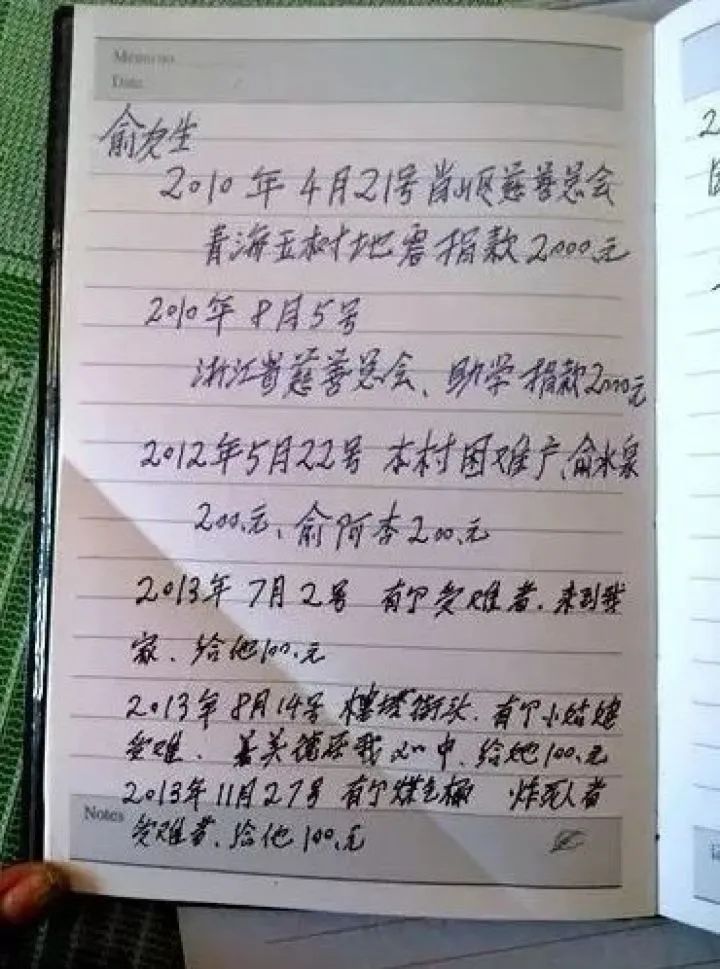 Memo no
Date
俞次生
2010年4月21号肖顺慈善总会
青海玉树地害捐款2000元
2010年8月5号
浙江省慈善总会、助学捐款2000元
2012年5月22号 本村困难户、俞水泉
200.元、俞阿杏200.元
2013年7月2号 有个受难者.来到我
家.给他100.元
2013年8月14号 楼塔街头.有个小姑娘
受难.在我心中.给她100.元
2013年11月27号 有个煤气 炸死人者
Notes
受难者.给他100.元
2